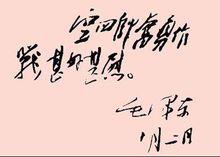 空四师奋勇作
战甚好甚慰。
毛泽东
1月二日